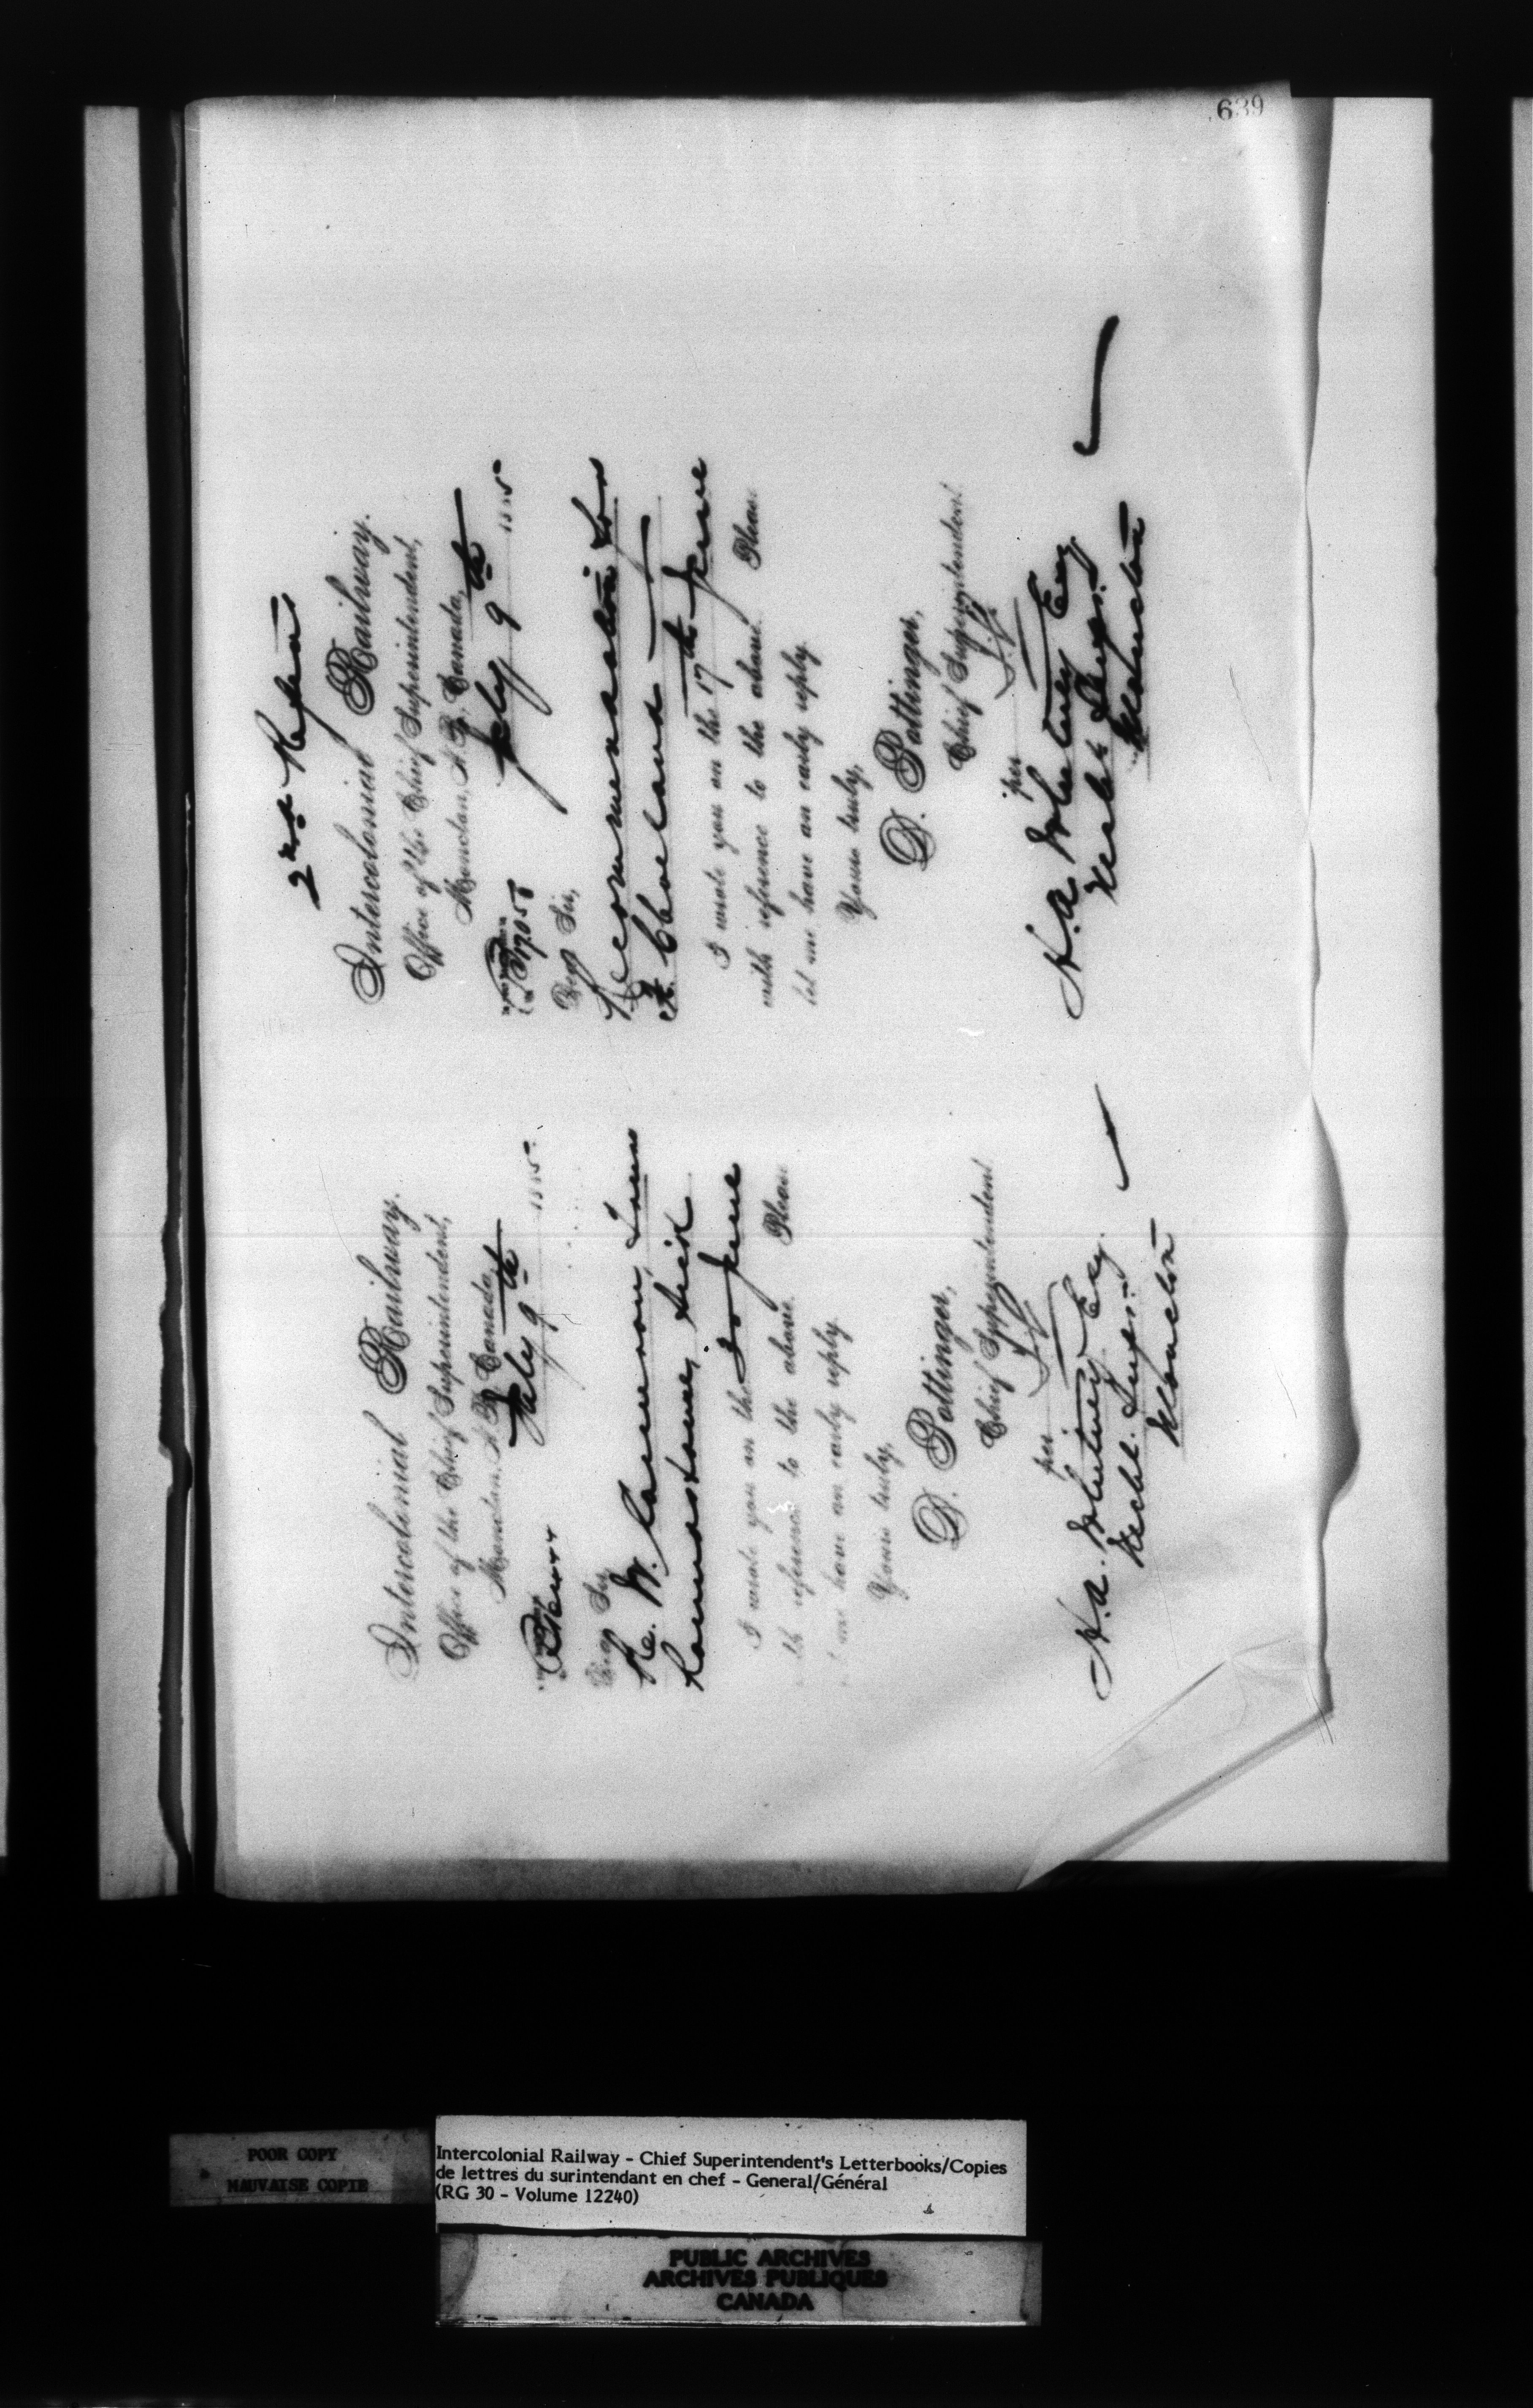 639
Intercolonial Railway.
Office of the Chief Superintendent,
Moncton, N.B. Canada,
July 9th 1885
Dear Sir,
Re. W. Cameron,
I wrote you on the June
with reference to the above. Please
let me have an early reply.
Yours truly,
D. Pottinger,
Chief Superintendent
per
H. A. Whitney Esq.
Mechl. Supt.
Moncton
2nd
Intercolonial Railway.
Office of the Chief Superintendent,
Moncton, N.B. Canada,
July 9th 1885
17055
Dear Sir,
Recommendation for
I wrote you on the 17th June
with reference to the above. Please
let me have an early reply.
Yours truly,
D. Pottinger,
Chief Superintendent
per
H. A. Whitney Esq
Mechl. Supt.
Moncton
POOR COPY
MAUVAISE COPIE
Intercolonial Railway - Chief Superintendent's Letterbooks/Copies
de lettres du surintendant en chef - General/Général
(RG 30 - Volume 12240)
PUBLIC ARCHIVES
ARCHIVES PUBLIQUES
CANADA